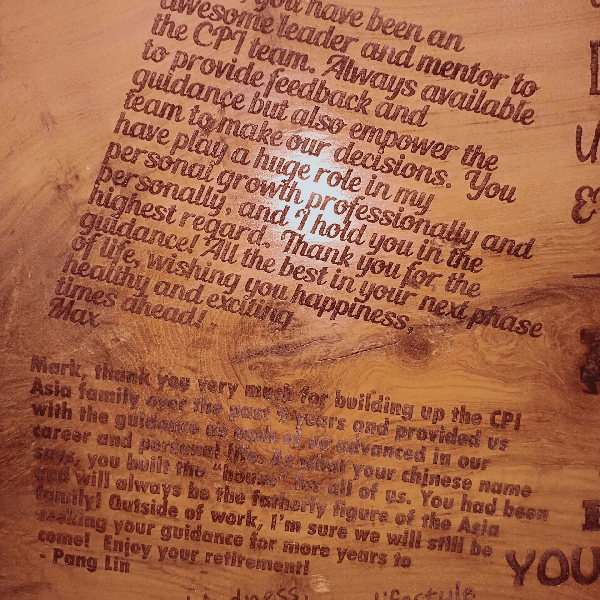 you have been an
awesome leader and mentor to
the CPI team. Always available
to provide feedback and
guidance but also empower the
team to make our decisions. You
have play a huge role in my
personal growth professionally and
personally, and I hold you in the
highest regard. Thank you for the
guidance! All the best in your next phase
of life, wishing you happiness,
healthy and exciting
times ahead!
Max
Mark, thank you very much for building up the CPI
Asia family over the past years and provided us
with the guidance as both of us advanced in our
career and personal life. As what your chinese name
says, you built the "house" for all of us. You had been
and will always be the fatherly figure of the Asia
family! Outside of work, I'm sure we will still be
seeking your guidance for more years to
come! Enjoy your retirement!
- Pang Lin
YOU
lifestyle